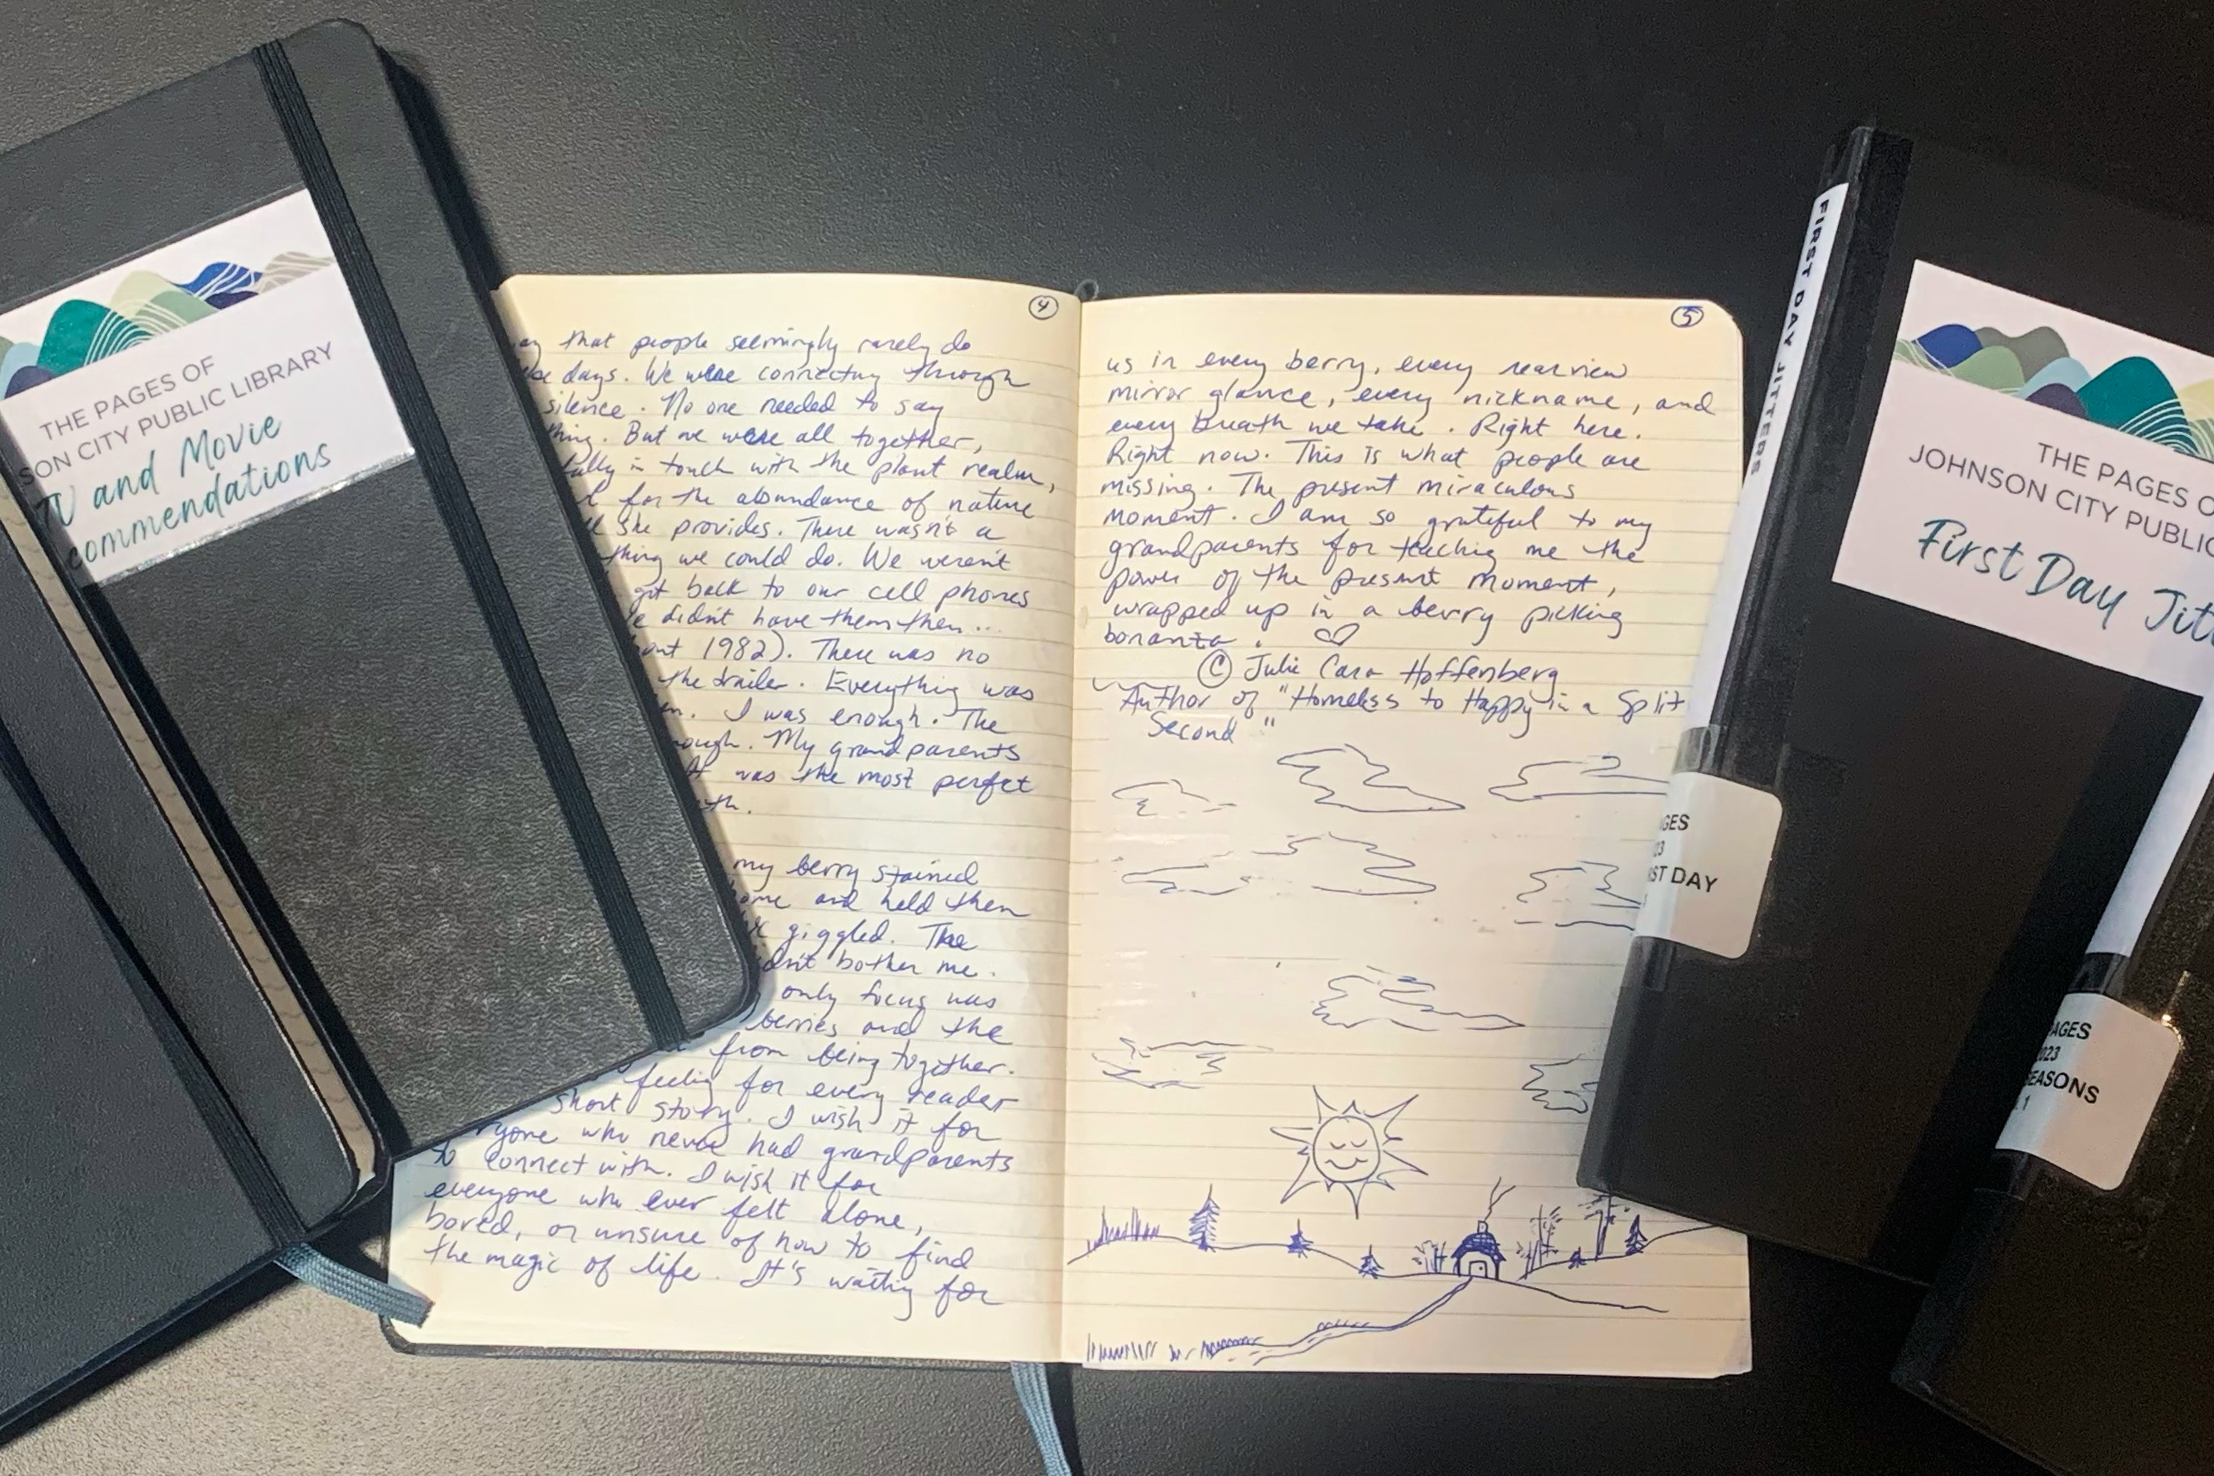 THE PAGES OF
SON CITY PUBLIC LIBRARY
TV and Movie
commendations
4
that people seemingly rarely do
days. We were connecting through
silence. No one needed to say
thing. But we were all together,
fully in touch with the plant realm,
for the abundance of nature
she provides. There wasn't a
thing we could do. We weren't
got back to our cell phones
didn't have them then...
out 1982). There was no
the trailer. Everything was
I was enough. The
ough. My grandparents
It was the most perfect
th.
my berry stained
ome and held them
giggled. The
dn't bother me.
only focus was
berries and the
from being together.
feeling for every reader
short story. I wish it for
ryone who never had grandparents
to connect with. I wish it for
everyone who ever felt alone,
bored, or unsure of how to find
the magic of life. It's waiting for
5
us in every berry, every rearview
mirror glance, every nickname, and
every breath we take. Right here.
Right now. This is what people are
missing. The present miraculous
moment. I am so grateful to my
grandparents for teaching me the
power of the present moment,
wrapped up in a berry picking
bonanza.
© Julie Cara Hoffenberg
Author of "Homeless to Happy in a Split
Second"
FIRST DAY JITTERS
GES
23
ST DAY
THE PAGES O
JOHNSON CITY PUBLIC
First Day Jitt
AGES
023
EASONS
. 1